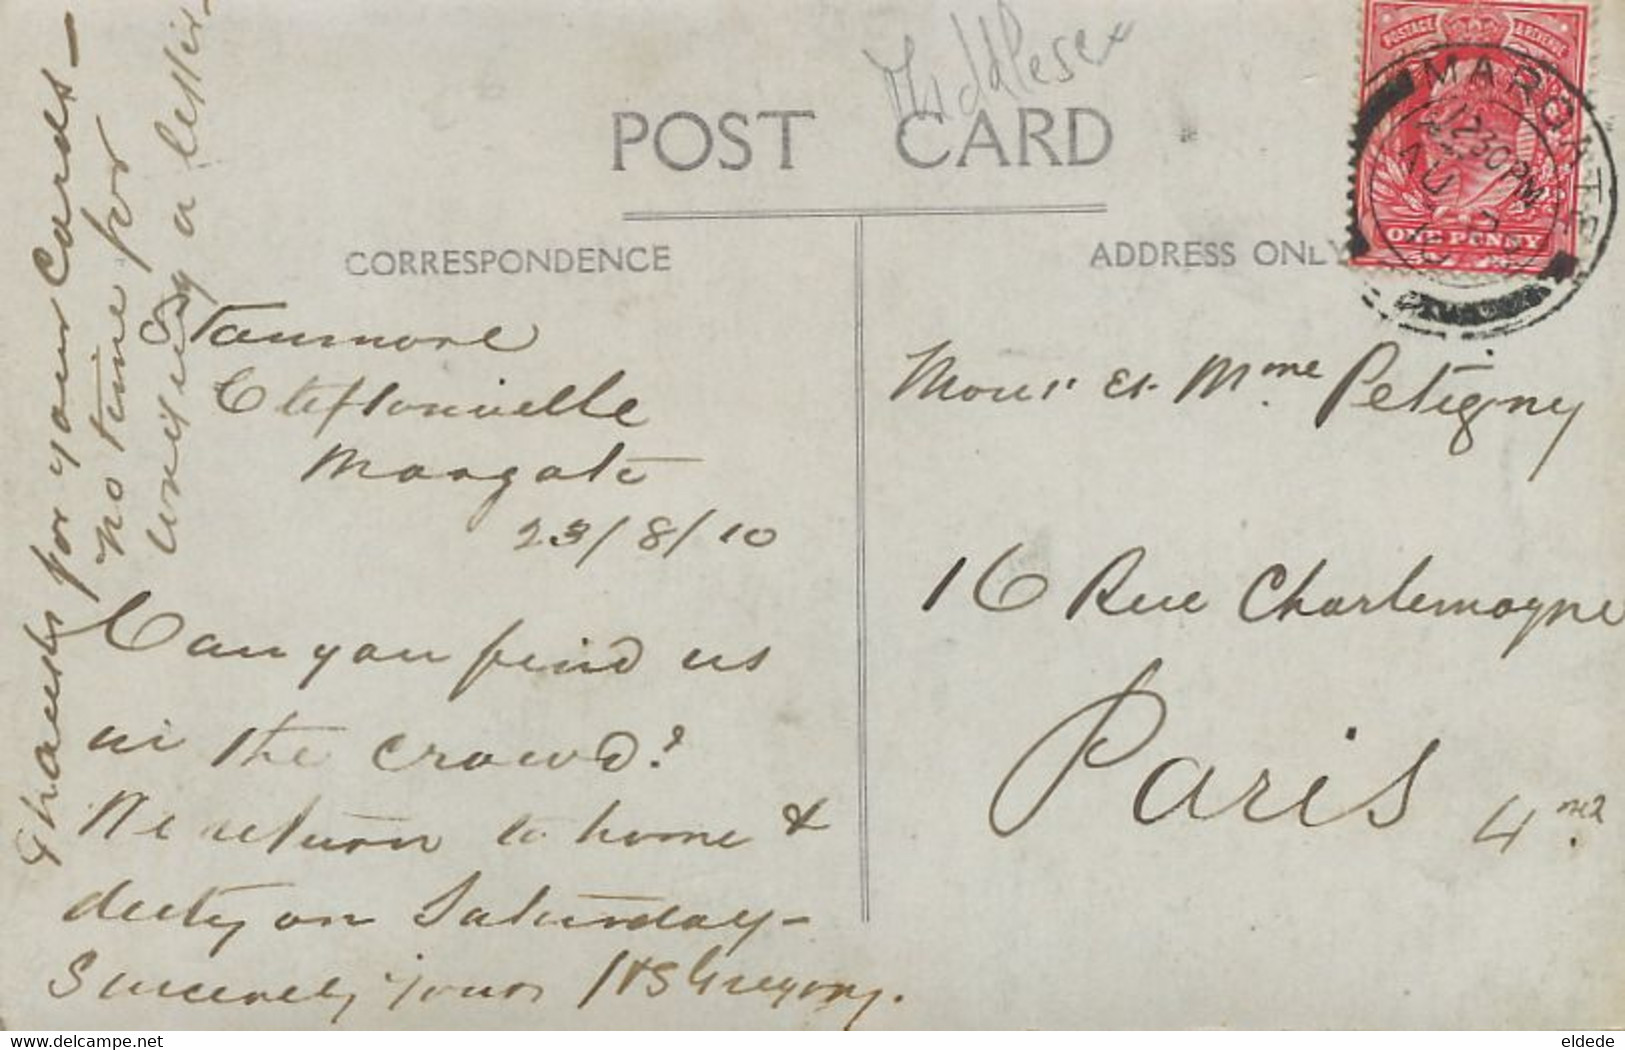 Middlesex
POST CARD
POSTAGE & REVENUE
MARGATE
12 30 PM
AU 23
10
ONE PENNY
CORRESPONDENCE
ADDRESS ONLY
Stanmore
Cliftonville
Margate
23/8/10
Can you find us
in the crowd?
We return to home &
duty on Saturday -
Sincerely yours HS Gregory.
Thanks for your cards -
no time for
writing a letter -
Monsr et Mme Petigny
16 Rue Charlemagne
Paris 4me
delcampe.net
eldede